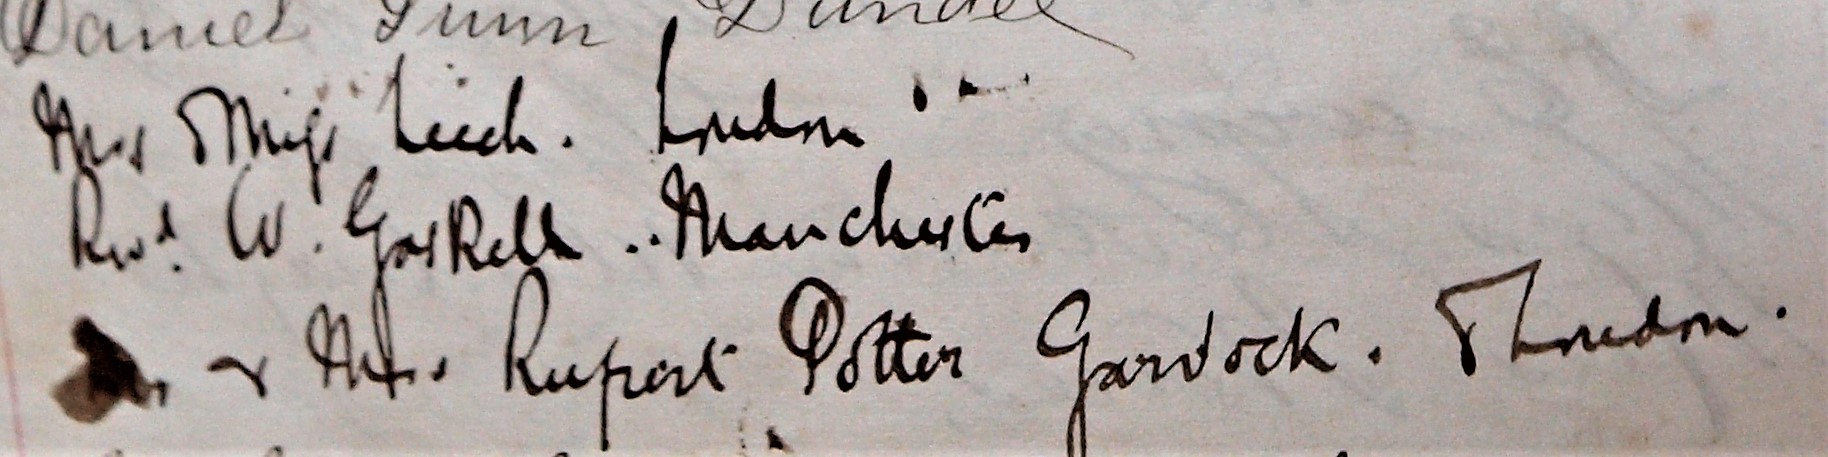 Daniel Gunn Dundee
Mrs & Miss Leech. London
Revd. W. Gaskell .. Manchester
Mr & Mrs Rupert Potter Garvock. & London.